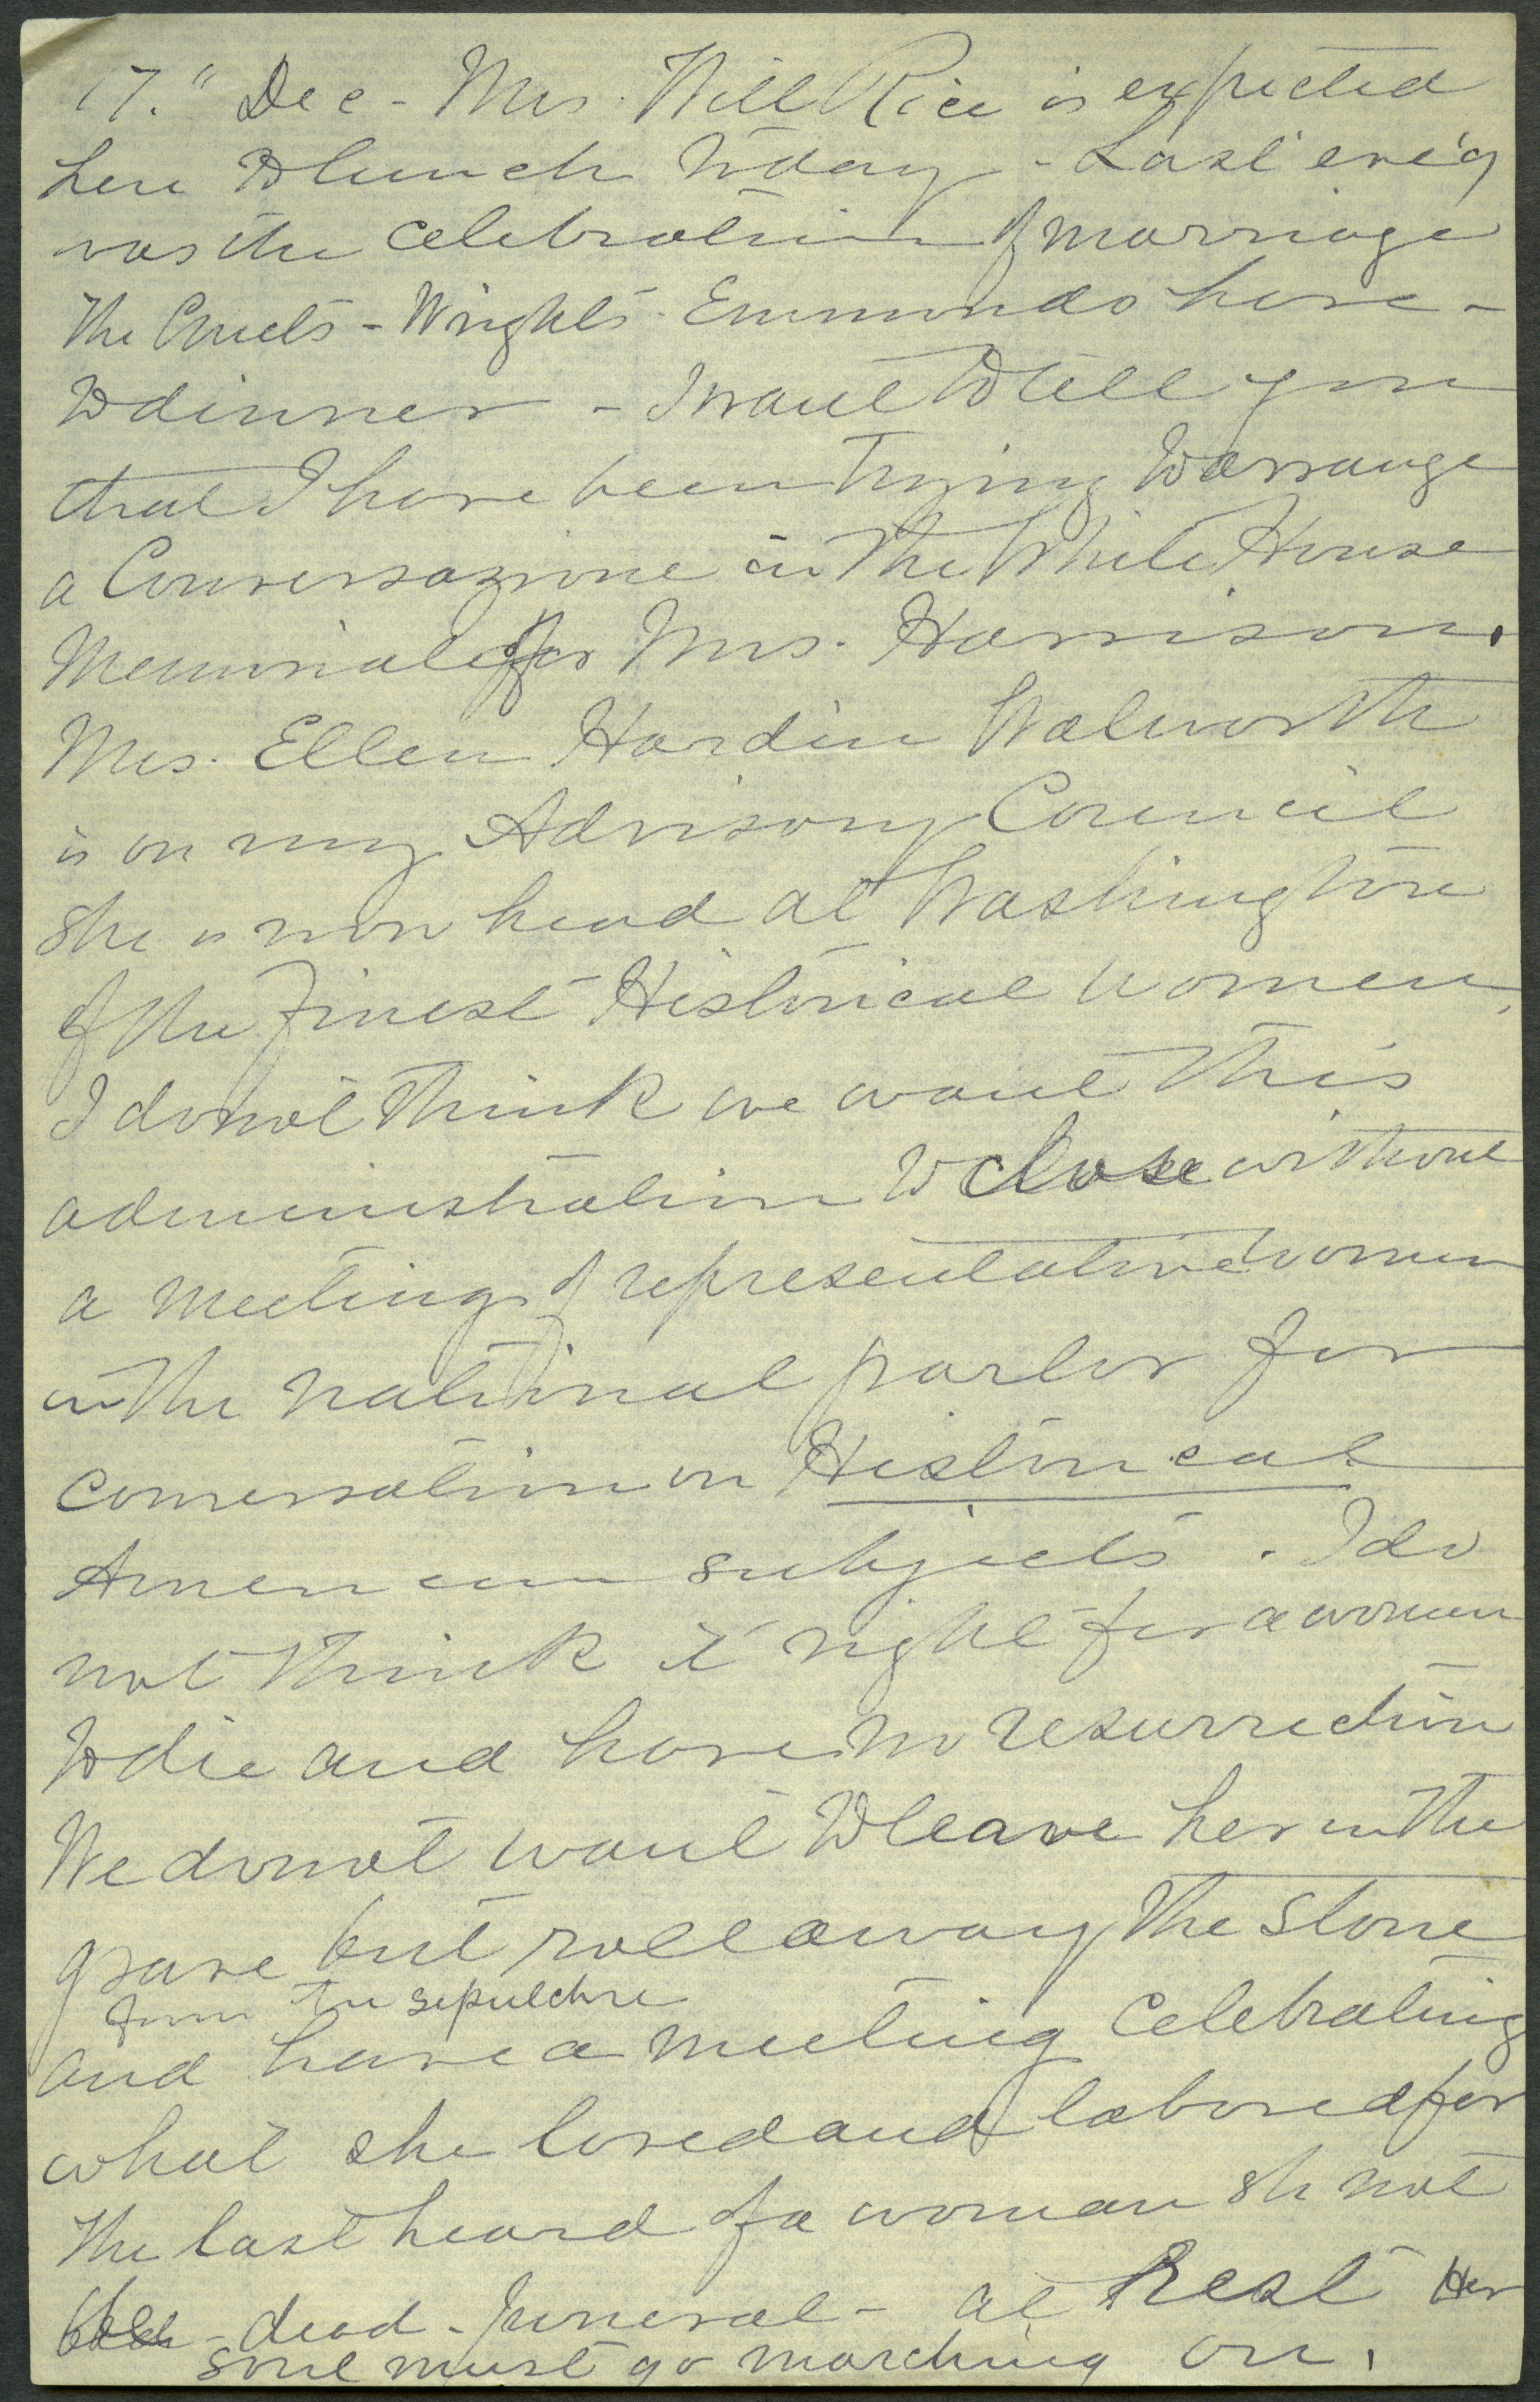 17." Dec - Mrs. Will Rice is expected
here to lunch today - Last eve'g
was the celebration of marriage
The - Wrights - Emmonds here -
to dinner - I want to tell you
that I have been trying to arrange
a Conversazione in the White House
Memorial for Mrs. Harrison.
Mrs. Ellen Hardin Walworth
is on my Advisory Council
She is now head at Washington
of the Finest Historical women,
I do not think we want this
administration to close without
a meeting of representative women
in the national parlor for
conversation on Historical
American subjects. I do
not think it right for a woman
to die and have no resurrection
We do not want to leave her in the
grave but roll away the stone
from the sepulchre
and have a meeting celebrating
what she loved and labored for
The last heard of a woman sh not
be - dead - funeral - at Rest Her
soul must go marching on.